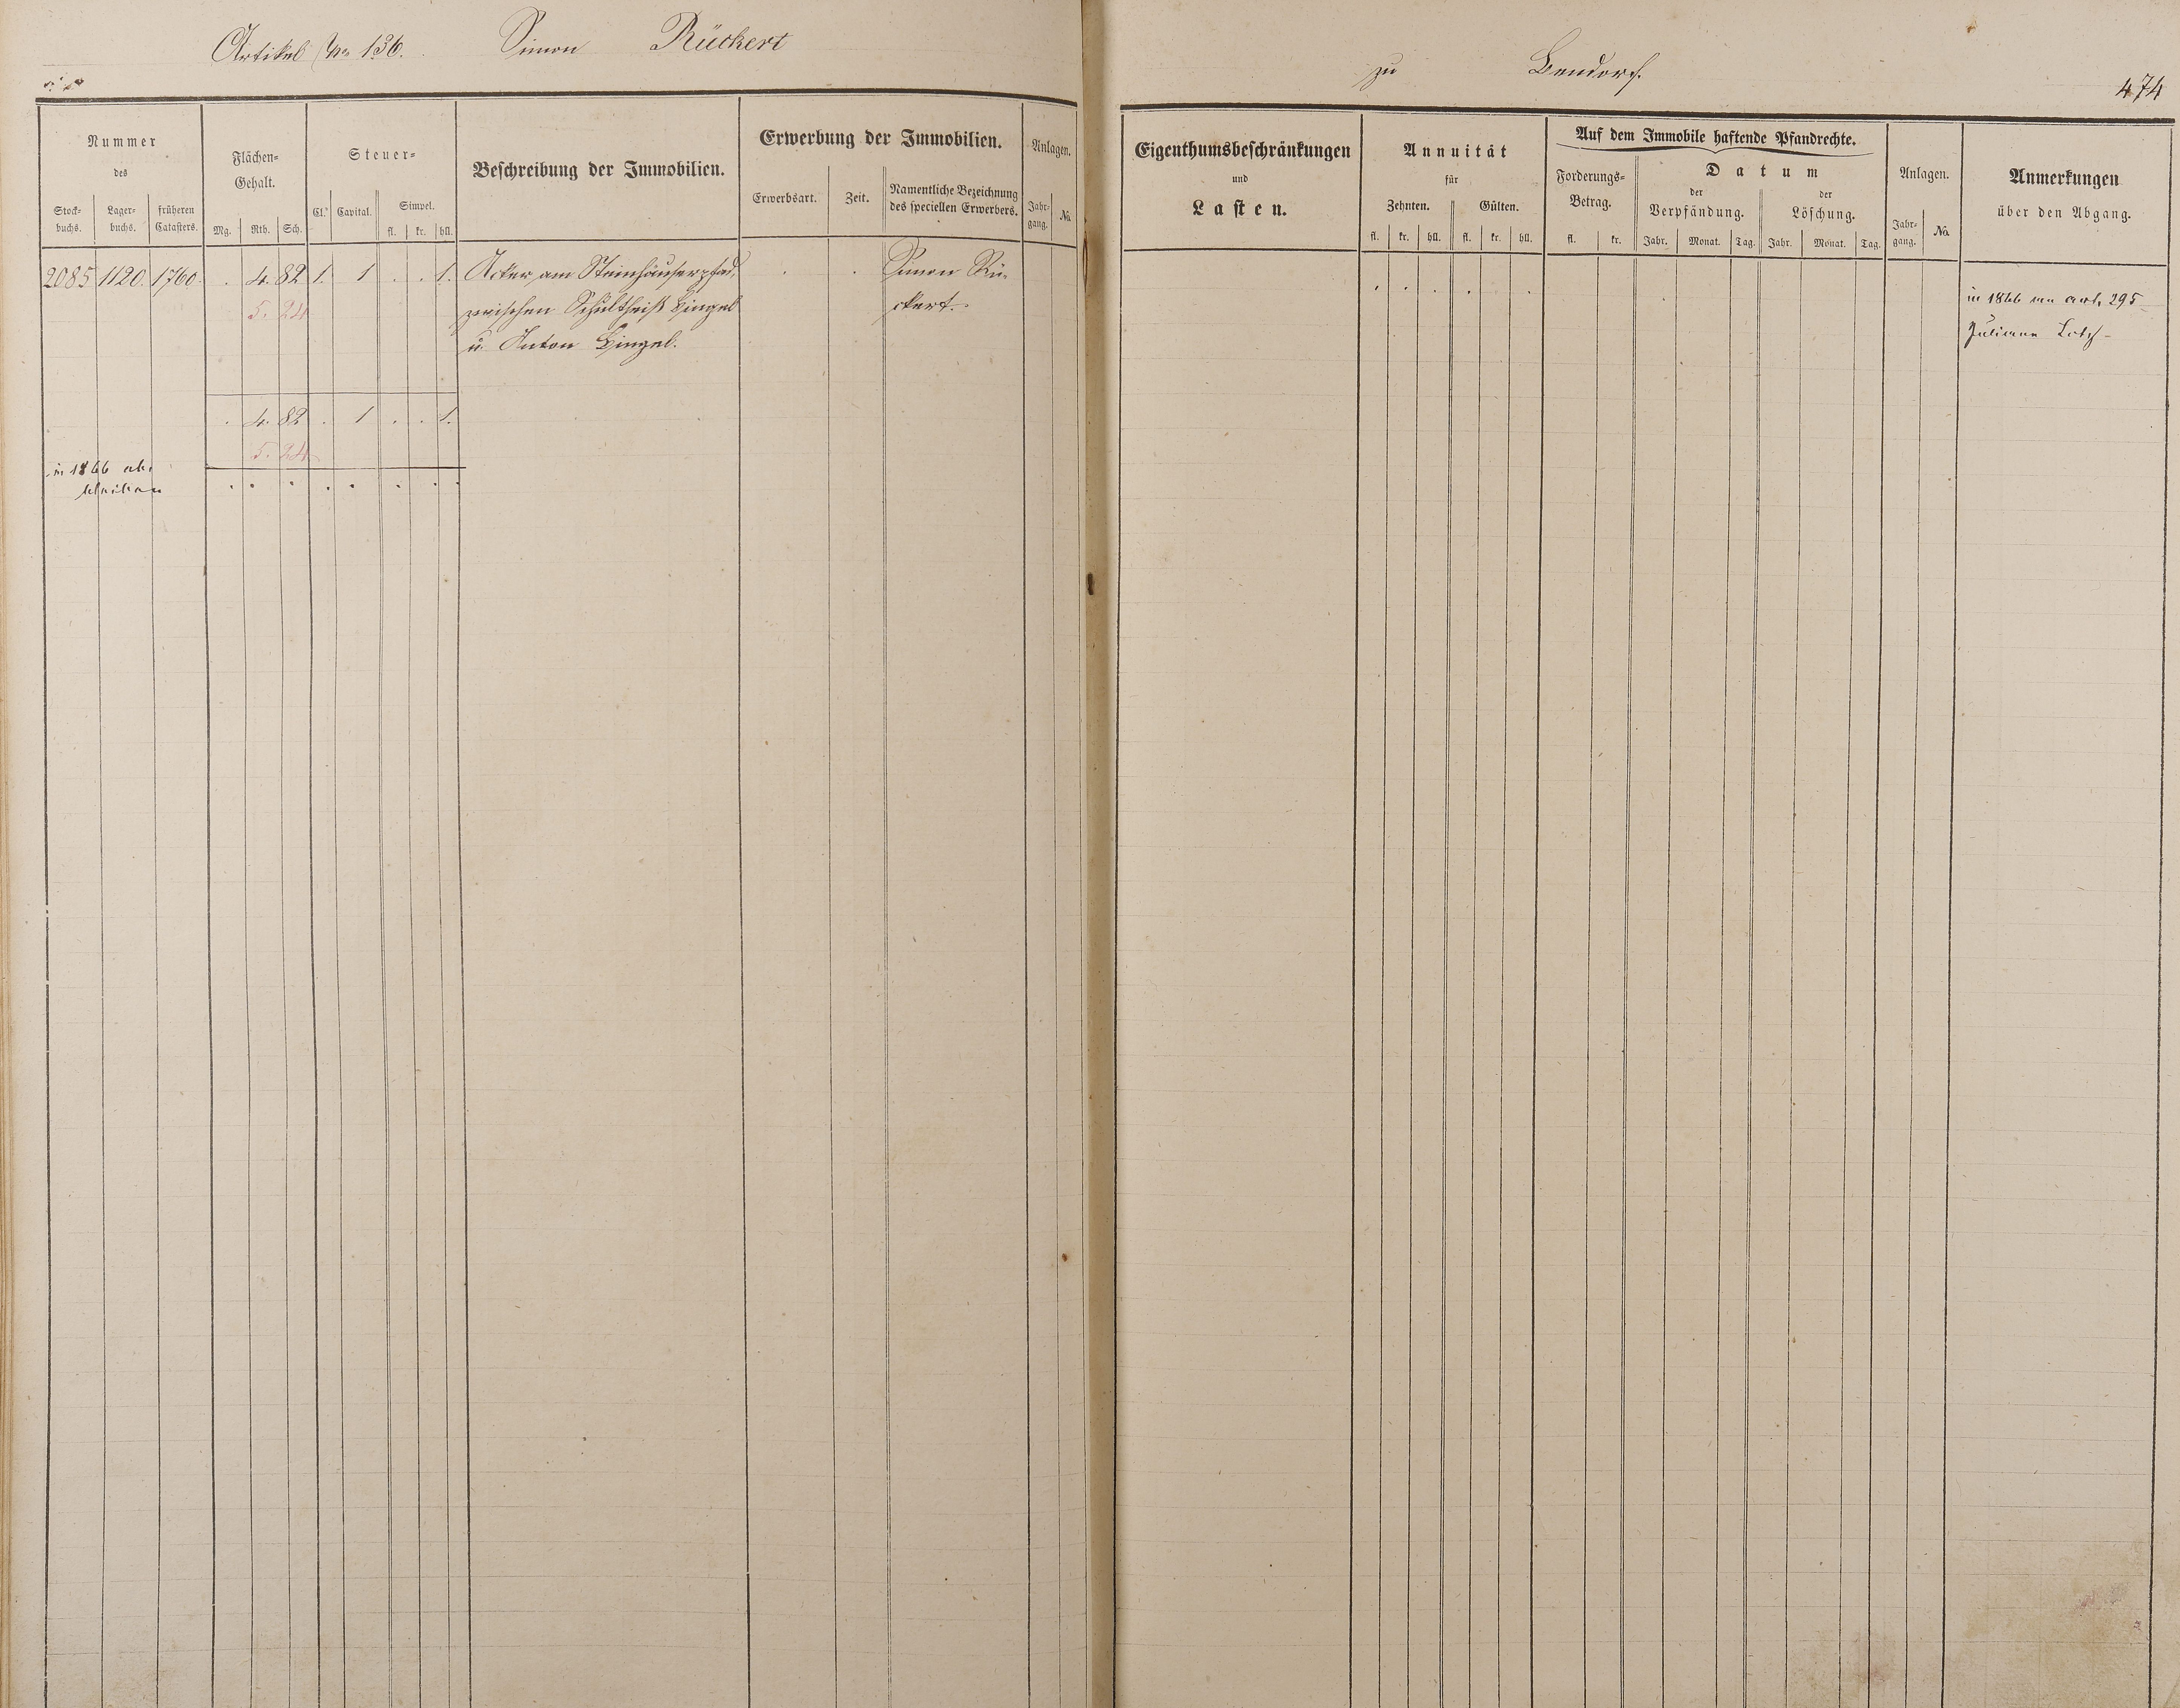 Artikel No 136. Simon Rückert
zu Bendorf.
474
Nummer
des
Stock-
buchs.
Lager-
buchs.
früheren
Catasters.
Flächen-
Gehalt.
Mg. Rth. Sch.
Steuer-
Cl. Capital.
Simpel.
fl. kr. hll.
Beschreibung der Immobilien.
Erwerbung der Immobilien.
Erwerbsart. Zeit.
Namentliche Bezeichnung
des speciellen Erwerbers.
Anlagen.
Jahr-
gang.
No.
2085 1120. 1760. . 4. 82 1. 1 . . 1. Acker am Steinhäuserpfad, . . Simon Rü-
5. 24 zwischen Schultheiß Hingel ckert.
u. Anton Hingel.
. 4. 82 . 1 . . 1.
5. 24
in 1866 ab.
Eigenthumsbeschränkungen
und
Lasten.
Annuität
für
Zehnten. Gülten.
fl. kr. hll. fl. kr. hll.
Auf dem Immobile haftende Pfandrechte.
Forderungs-
Betrag.
fl. kr.
Datum
der
Verpfändung.
Jahr. Monat. Tag.
der
Löschung.
Jahr. Monat. Tag.
Anlagen.
Jahr-
gang.
No.
Anmerkungen
über den Abgang.
in 1866 an art. 295
Juliane Lotz